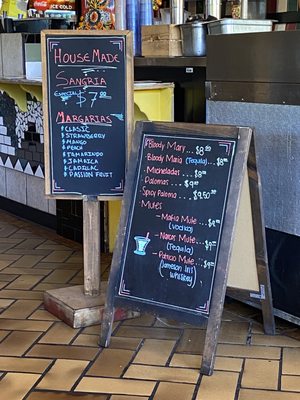 Coca-Cola
HouseMade
Sangria
$7
Margarias
Clasic
Strawberry
Mango
Peach
Tamarindo
Jamaica
Cadillac
Passion Fruit
Bloody Mary ... $8
Bloody Maria (Tequila) $9
Micheladas ... $9
Palomas ... $9
Spicy Paloma ... $9.50
Mules
- Mafia Mule $9
(Vodka)
- Narcos Mule $9
(Tequila)
- Patricio Mule $9
(Jameson Irish
Whiskey)